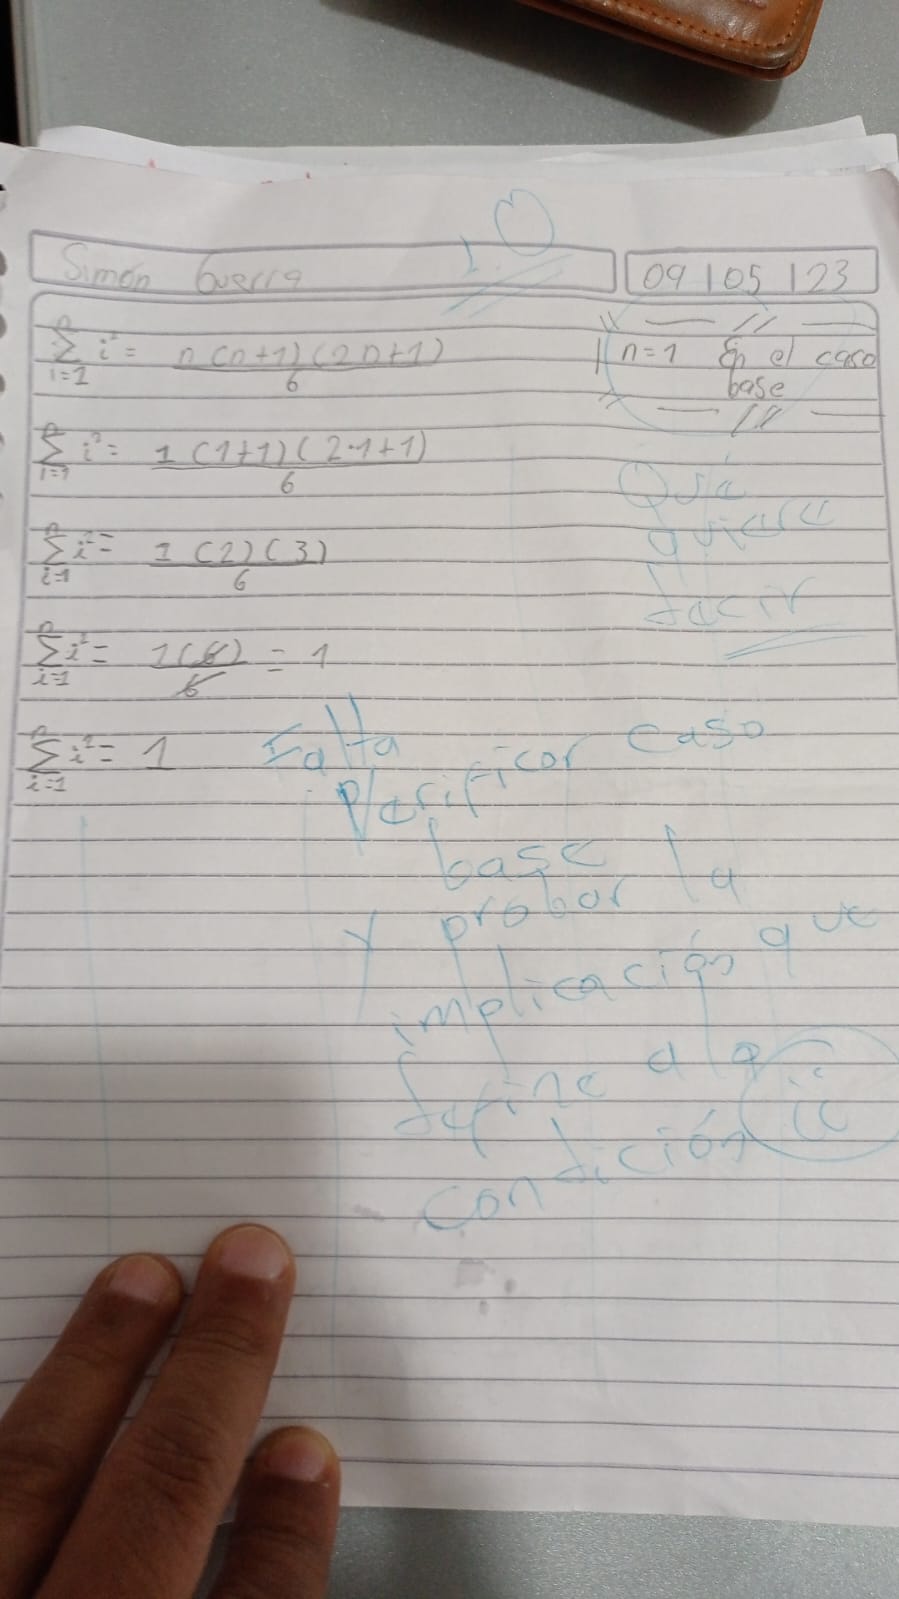 1.0
Simón Guerra
09 | 05 | 23
n
∑ i² = n(n+1)(2n+1)
i=1 6
n=1 En el caso
base
n
∑ i² = 1(1+1)(2·1+1)
i=1 6
Qué
quiere
decir
n
∑ i² = 1(2)(3)
i=1 6
n
∑ i² = 1(6) = 1
i=1 6
n
∑ i² = 1
i=1
Falta
Verificar caso
base
y probar la
implicación que
define a la
condición